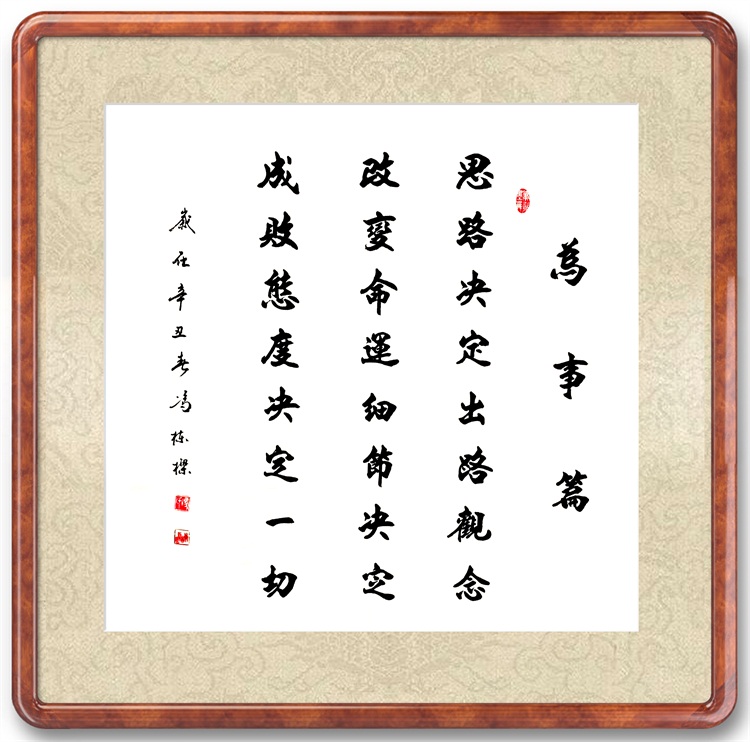 為事篇
思路决定出路觀念
改變命運細節决定
成敗態度决定一切
歲在辛丑春馮栋樑